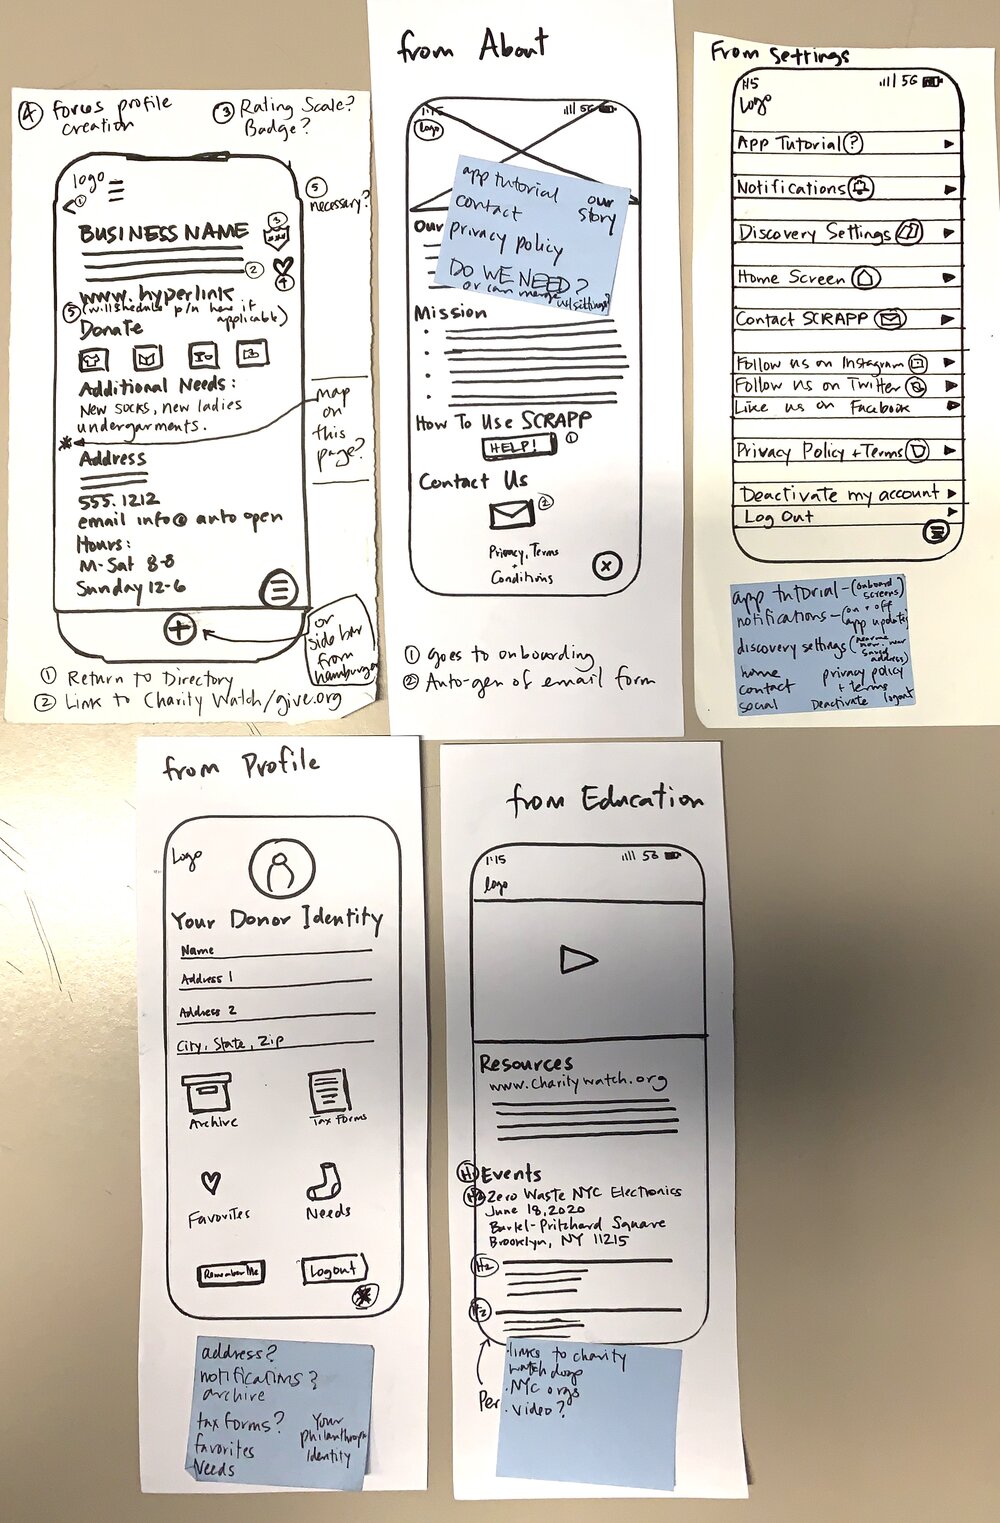 ④ forces profile
creation
③ Rating Scale?
Badge?
⑤
necessary?
logo
①
BUSINESS NAME
③
②
④
www.hyperlink
⑤ (will shedule p/u here if
applicable)
Donate
Additional Needs:
New socks, new ladies
undergarments.
map
on
this
page?
Address
555.1212
email info@
Hours:
M-Sat 8-8
Sunday 12-6
or
side bar
from
hamburger
① Return to Directory
② Link to Charity Watch/give.org
from About
1:15 5G
logo
app tutorial
contact
our
story
privacy policy
DO WE NEED?
or can merge w/settings?
Our
Mission
How To Use SCRAPP
HELP! ①
Contact Us
②
Privacy, Terms
+
Conditions
X
① goes to onboarding
② Auto-gen of email form
From Settings
1:15 5G
Logo
App Tutorial ?
Notifications
Discovery Settings
Home Screen
Contact SCRAPP
Follow us on Instagram
Follow us on Twitter
Like us on Facebook
Privacy Policy + Terms
Deactivate my account
Log Out
app tutorial - (onboard
screens)
notifications - (on + off
app updates)
discovery settings (near me
now, near
saved
address)
home
contact
social
privacy policy
+ terms
Deactivate logout
from Profile
Logo
Your Donor Identity
Name
Address 1
Address 2
City, State, Zip
Archive
Tax Forms
Favorites
Needs
Remember Me
Logout
address?
notifications?
archive
tax forms?
favorites
Needs
Your
philanthropic
Identity
from Education
1:15 5G
logo
Resources
www.charitywatch.org
H1 Events
H2 Zero Waste NYC Electronics
June 18, 2020
Bartel-Pritchard Square
Brooklyn, NY 11215
H2
H2
Per
.links to charity
watch dogs
.NYC orgs
.video?